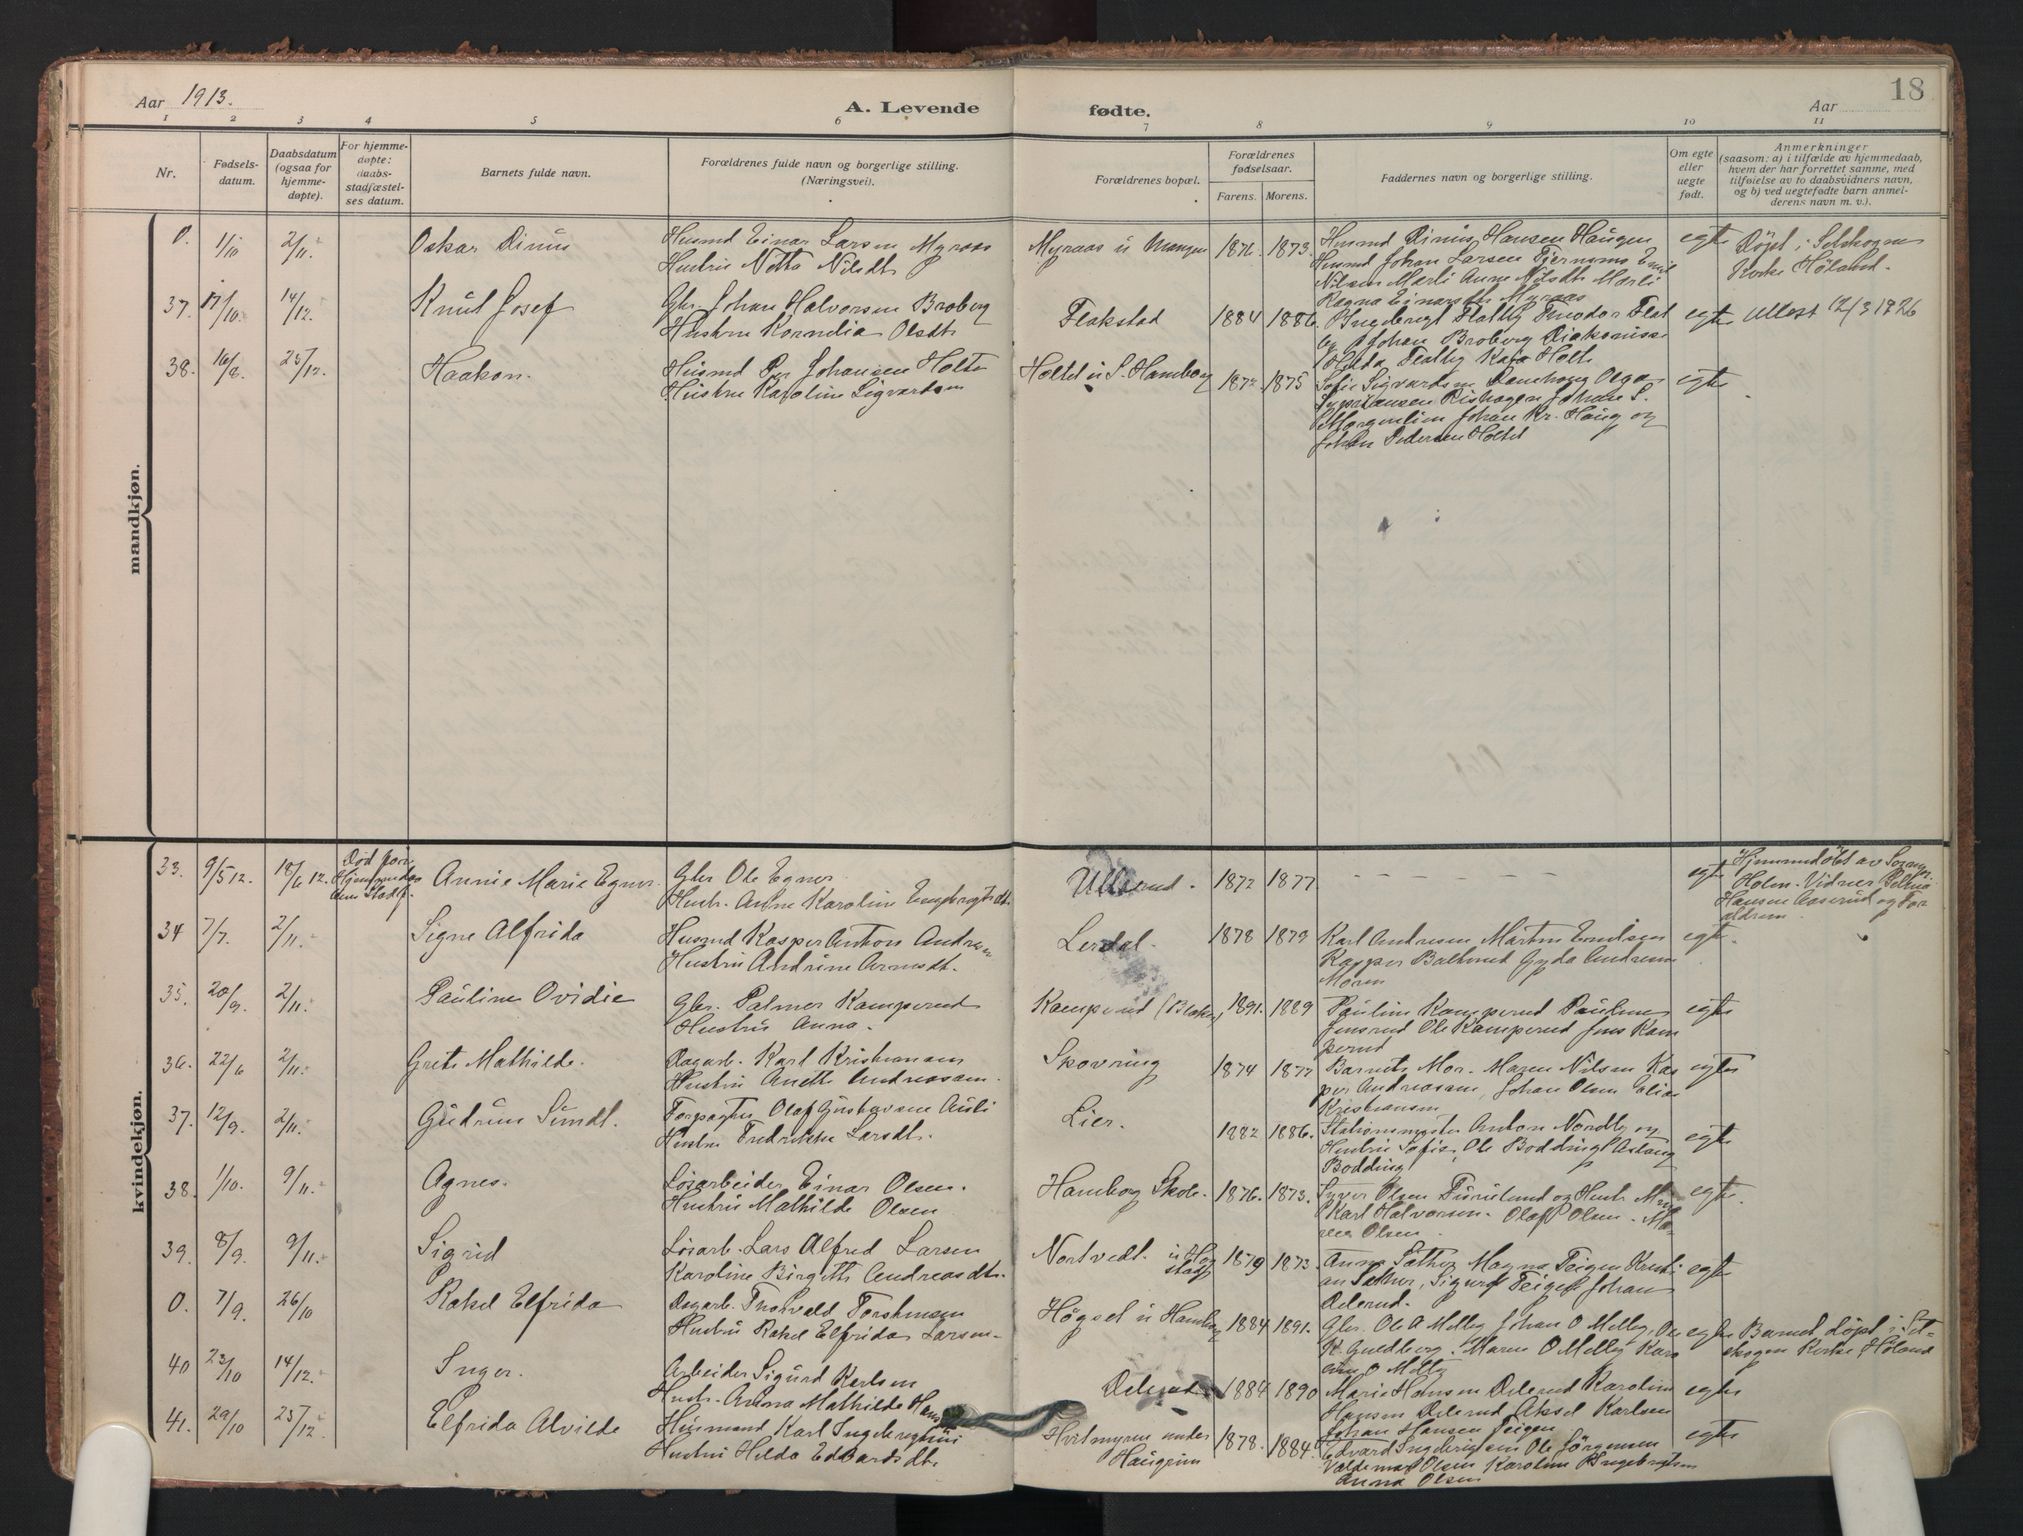 Aar 1913.
A. Levende fødte.
Aar
18
1 2 3 4 5 6 7 8 9 10 11
Nr.
Fødsels-
datum.
Daabsdatum
(ogsaa for
hjemme-
døpte).
For hjemme-
døpte:
daabs-
stadfæstel-
ses datum.
Barnets fulde navn.
Forældrenes fulde navn og borgerlige stilling.
(Næringsvei).
Forældrenes bopæl.
Forældrenes
fødselsaar.
Farens. Morens.
Faddernes navn og borgerlige stilling.
Om egte
eller
uegte
født.
Anmerkninger
(saasom: a) i tilfælde av hjemmedaab,
hvem der har forrettet samme, med
tilføielse av to daabsvidners navn,
og b) ved uegtefødte barn anmel-
derens navn m. v.).
mandkjøn.
0. 1/10 2/11. Oskar Dinus
Husmd Einar Larsen Myraas
Hustru Netta Nilsdt.
Myraas u Mangen 1873.
Husmd Dinus Hansen Haugen
Husmd Johan Larsen
Nilsen Marli Anne Nilsdt. Marli
Ragna Einarsdt. Myraas
egte
Døpt i Setskogen
Kirke Høland.
37. 17/10. 14/12. Knut Josef
Gbr. Johan Halvorsen Broberg
Hustru Kornelia Olsdt.
Flakstad 1884 1886.
Ingebregt Flatby Teodor Flat
by Johan Broberg Diakonisse
Hilda Flatby Kaja Holt.
egte Utlest 12/3 1926
38. 16/8. 25/12. Haakon.
Husmd Per Johansen Holte
Hustru Karoline Sigvardsen
Holtet u S. Hamborg 1872. 1875
Sofie Sigvardsen Olga
Johan S.
Morgenlien Johan Kr. Haug og
Johan Pedersen Holtet
egte
kvindekjøn.
33. 9/5 12. 18/6 12. Død før
Annie Marie Egner.
Gbr Ole Egner.
Hustr. Anne Karoline Engebregtsdt.
Ullerud. 1872 1877. – – – – – –
egte
Hjemmedøbt av
Holm. Vidner
Hansen Aaserud og For
ældrene.
34 7/7. 2/11. Signe Alfrida
Husmd Kasper Anton Andresen
Hustru Andrine Arnesdt.
Lerdal. 1878 1879
Karl Andresen Martin Emilsen
Kasper Gyda Andresen
Moren
egte.
35. 20/9. 2/11. Pauline Ovidie
Gbr. Palmer Kamperud
Hustru Anna.
Kamperud (Blaker) 1891. 1889
Pauline Kamperud Pauline
Jensrud Ole Kamperud Jens Kam
perud
egte
36. 22/6 2/11. Grete Mathilde.
Dagarb. Karl Kristiansen
Hustru Anette Andreasen.
Skovring 1874 1877
Barnets Mor. Maren Nilsen Kas
per Andreasen, Johan Olsen
Kristiansen
egte
37. 12/9. 2/11. Gudrun Sundt.
Forpagter Olaf Gustavsen Auli
Hustru Fredrikke Larsdt.
Lier. 1882 1886.
Stationsmester Anton Nordby og
Hustru Sofie, Ole Bodding Aslaug
Bodding
egte
38. 1/10. 9/11. Agnes.
Løsarbeider Einar Olsen.
Hustru Mathilde Olsen
Hamborg Skole. 1876. 1873.
Syver Olsen Furulund og Hustr.
Karl Halvorsen. Olaf Olsen. Ma-
ren Olsen.
egte.
39. 8/9. 9/11. Sigrid
Løsarb. Lars Alfred Larsen
Karoline Birgitte Andreasdt.
Nortvedt. 1879 1873.
Anne Sather Magna Teigen Kristi
an Sather, Sigurd Teigen Johan
Delerud.
egte
0. 7/9. 26/10 Rakel Elfrida
Dagarb. Thorvald Torstensen
Hustru Rakel Elfrida Larsen
Høgset u Hamborg 1884 1891.
Gbr. Ole A Melby Johan O Melby, Ole
K. Guldberg, Maren O Melby Karo
line O Melby
egte
Barnet døpt i Set-
skogen Kirke, Høland
40 23/10 14/12. Inger.
Arbeider Sigurd Karlsen
Hustr. Anna Mathilde
Delerud 1884 1890
Marie Hansen Delerud Karoline
Hansen Delerud Aksel Karlsen
Johan Hansen Teigen
egte
41. 29/10 25/12. Elfrida Alvilde
Husmand Karl Ingebrigtsen
Hustru Hilda Edvardsdt.
Hvitmyren under
Haugrim 1878. 1884.
Edvard Ingebrigtsen Ole Jørgensen
Valdemar Olsen Karoline Ingebrigtsen
Anna Olsen
egte